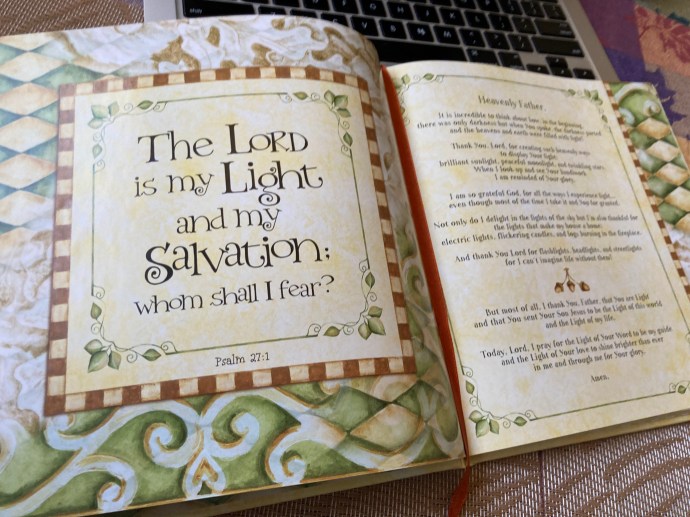 The Lord
is my Light
and my
Salvation;
whom shall I fear?
Psalm 27:1
Heavenly Father
It is incredible to think about how, in the beginning,
there was only darkness but when You spoke, the darkness parted
and the heavens and earth were filled with light!
Thank You, Lord, for creating such heavenly ways
to display Your light,
brilliant sunlight, peaceful moonlight, and twinkling stars...
When I look up and see Your handiwork
I am reminded of Your glory.
I am so grateful God, for all the ways I experience light...
even though most of the time I take it and You for granted.
Not only do I delight in the lights of the sky but I'm also thankful for
the lights that make my house a home:
electric lights, flickering candles, and logs burning in the fireplace.
And thank You Lord for flashlights, headlights, and streetlights
for I can't imagine life without them!
But most of all, I thank You, Father, that You are Light
and that You sent Your Son Jesus to be the Light of this world
and the Light of my life.
Today, Lord, I pray for the Light of Your Word to be my guide
and the Light of Your love to shine brighter than ever
in me and through me for Your glory.
Amen.